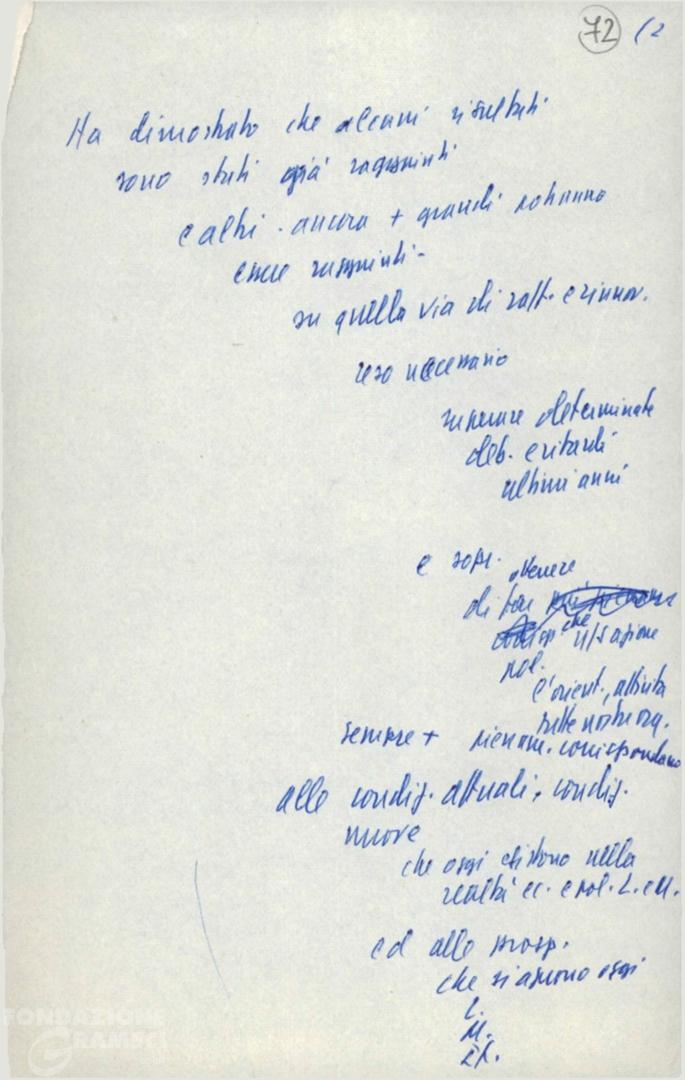 72 (2
Ha dimostrato che alcuni risultati
sono stati già raggiunti
e altri ancora + grandi potranno
essere raggiunti -
su quella via di raff. e rinnov.
reso necessario
superare determinate
deb. e ritardi
ultimi anni
e sopr. ottenere
di fare
che n/s azione
pol.
l'orient., attività
tutte nostre org.
sempre + pienam. corrispondano
alle condiz. attuali, condiz.
nuove
che oggi esistono nella
realtà ec. e pol. I. e M.
ed alle prosp.
che si aprono oggi
I.
M.
FONDAZIONE
GRAMSCI